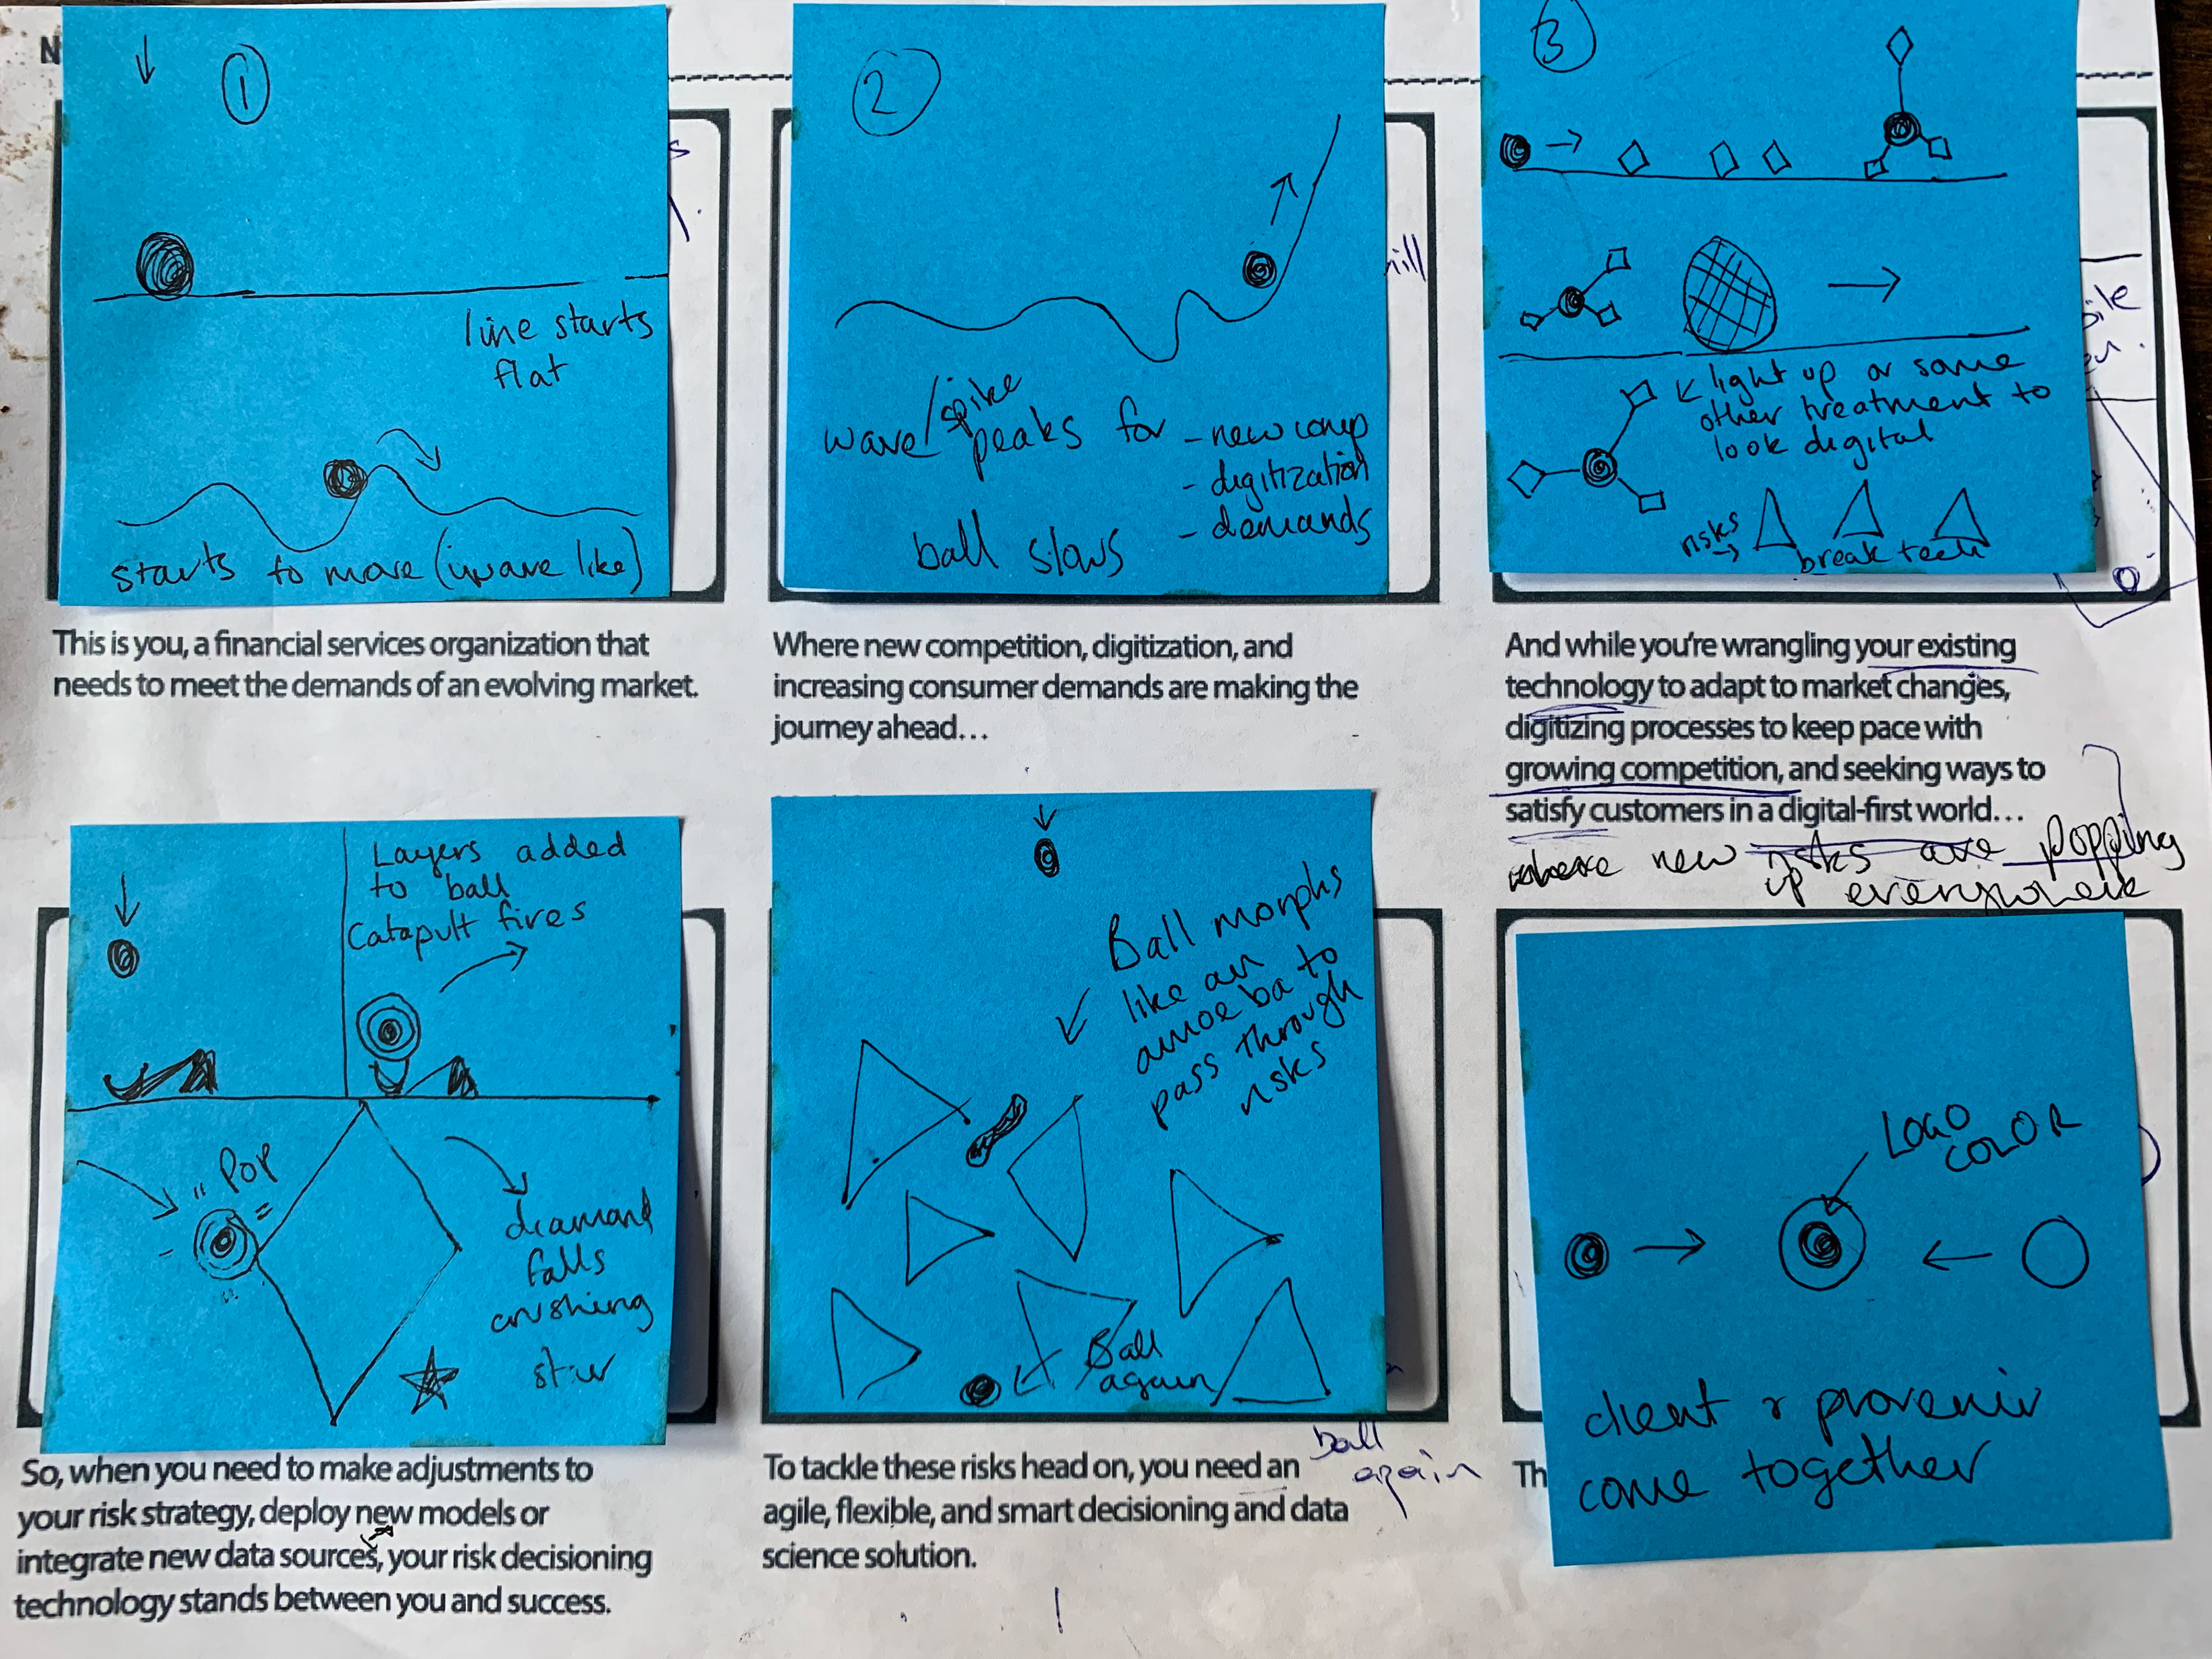 N
1
line starts
flat
starts to move (wave like)
This is you, a financial services organization that
needs to meet the demands of an evolving market.
2
wave/spike
peaks for - new comp
- digitization
- demands
ball slows
Where new competition, digitization, and
increasing consumer demands are making the
journey ahead…
3
light up or some
other treatment to
look digital
risks
break tech
And while you're wrangling your existing
technology to adapt to market changes,
digitizing processes to keep pace with
growing competition, and seeking ways to
satisfy customers in a digital-first world…
where new risks are popping
up everywhere
Layers added
to ball
Catapult fires
"Pop"
diamond
falls
crushing
star
So, when you need to make adjustments to
your risk strategy, deploy new models or
integrate new data sources, your risk decisioning
technology stands between you and success.
Ball morphs
like an
amoeba to
pass through
risks
Ball
again
ball
again
To tackle these risks head on, you need an
agile, flexible, and smart decisioning and data
science solution.
LOGO
COLOR
client & provenir
come together
Th